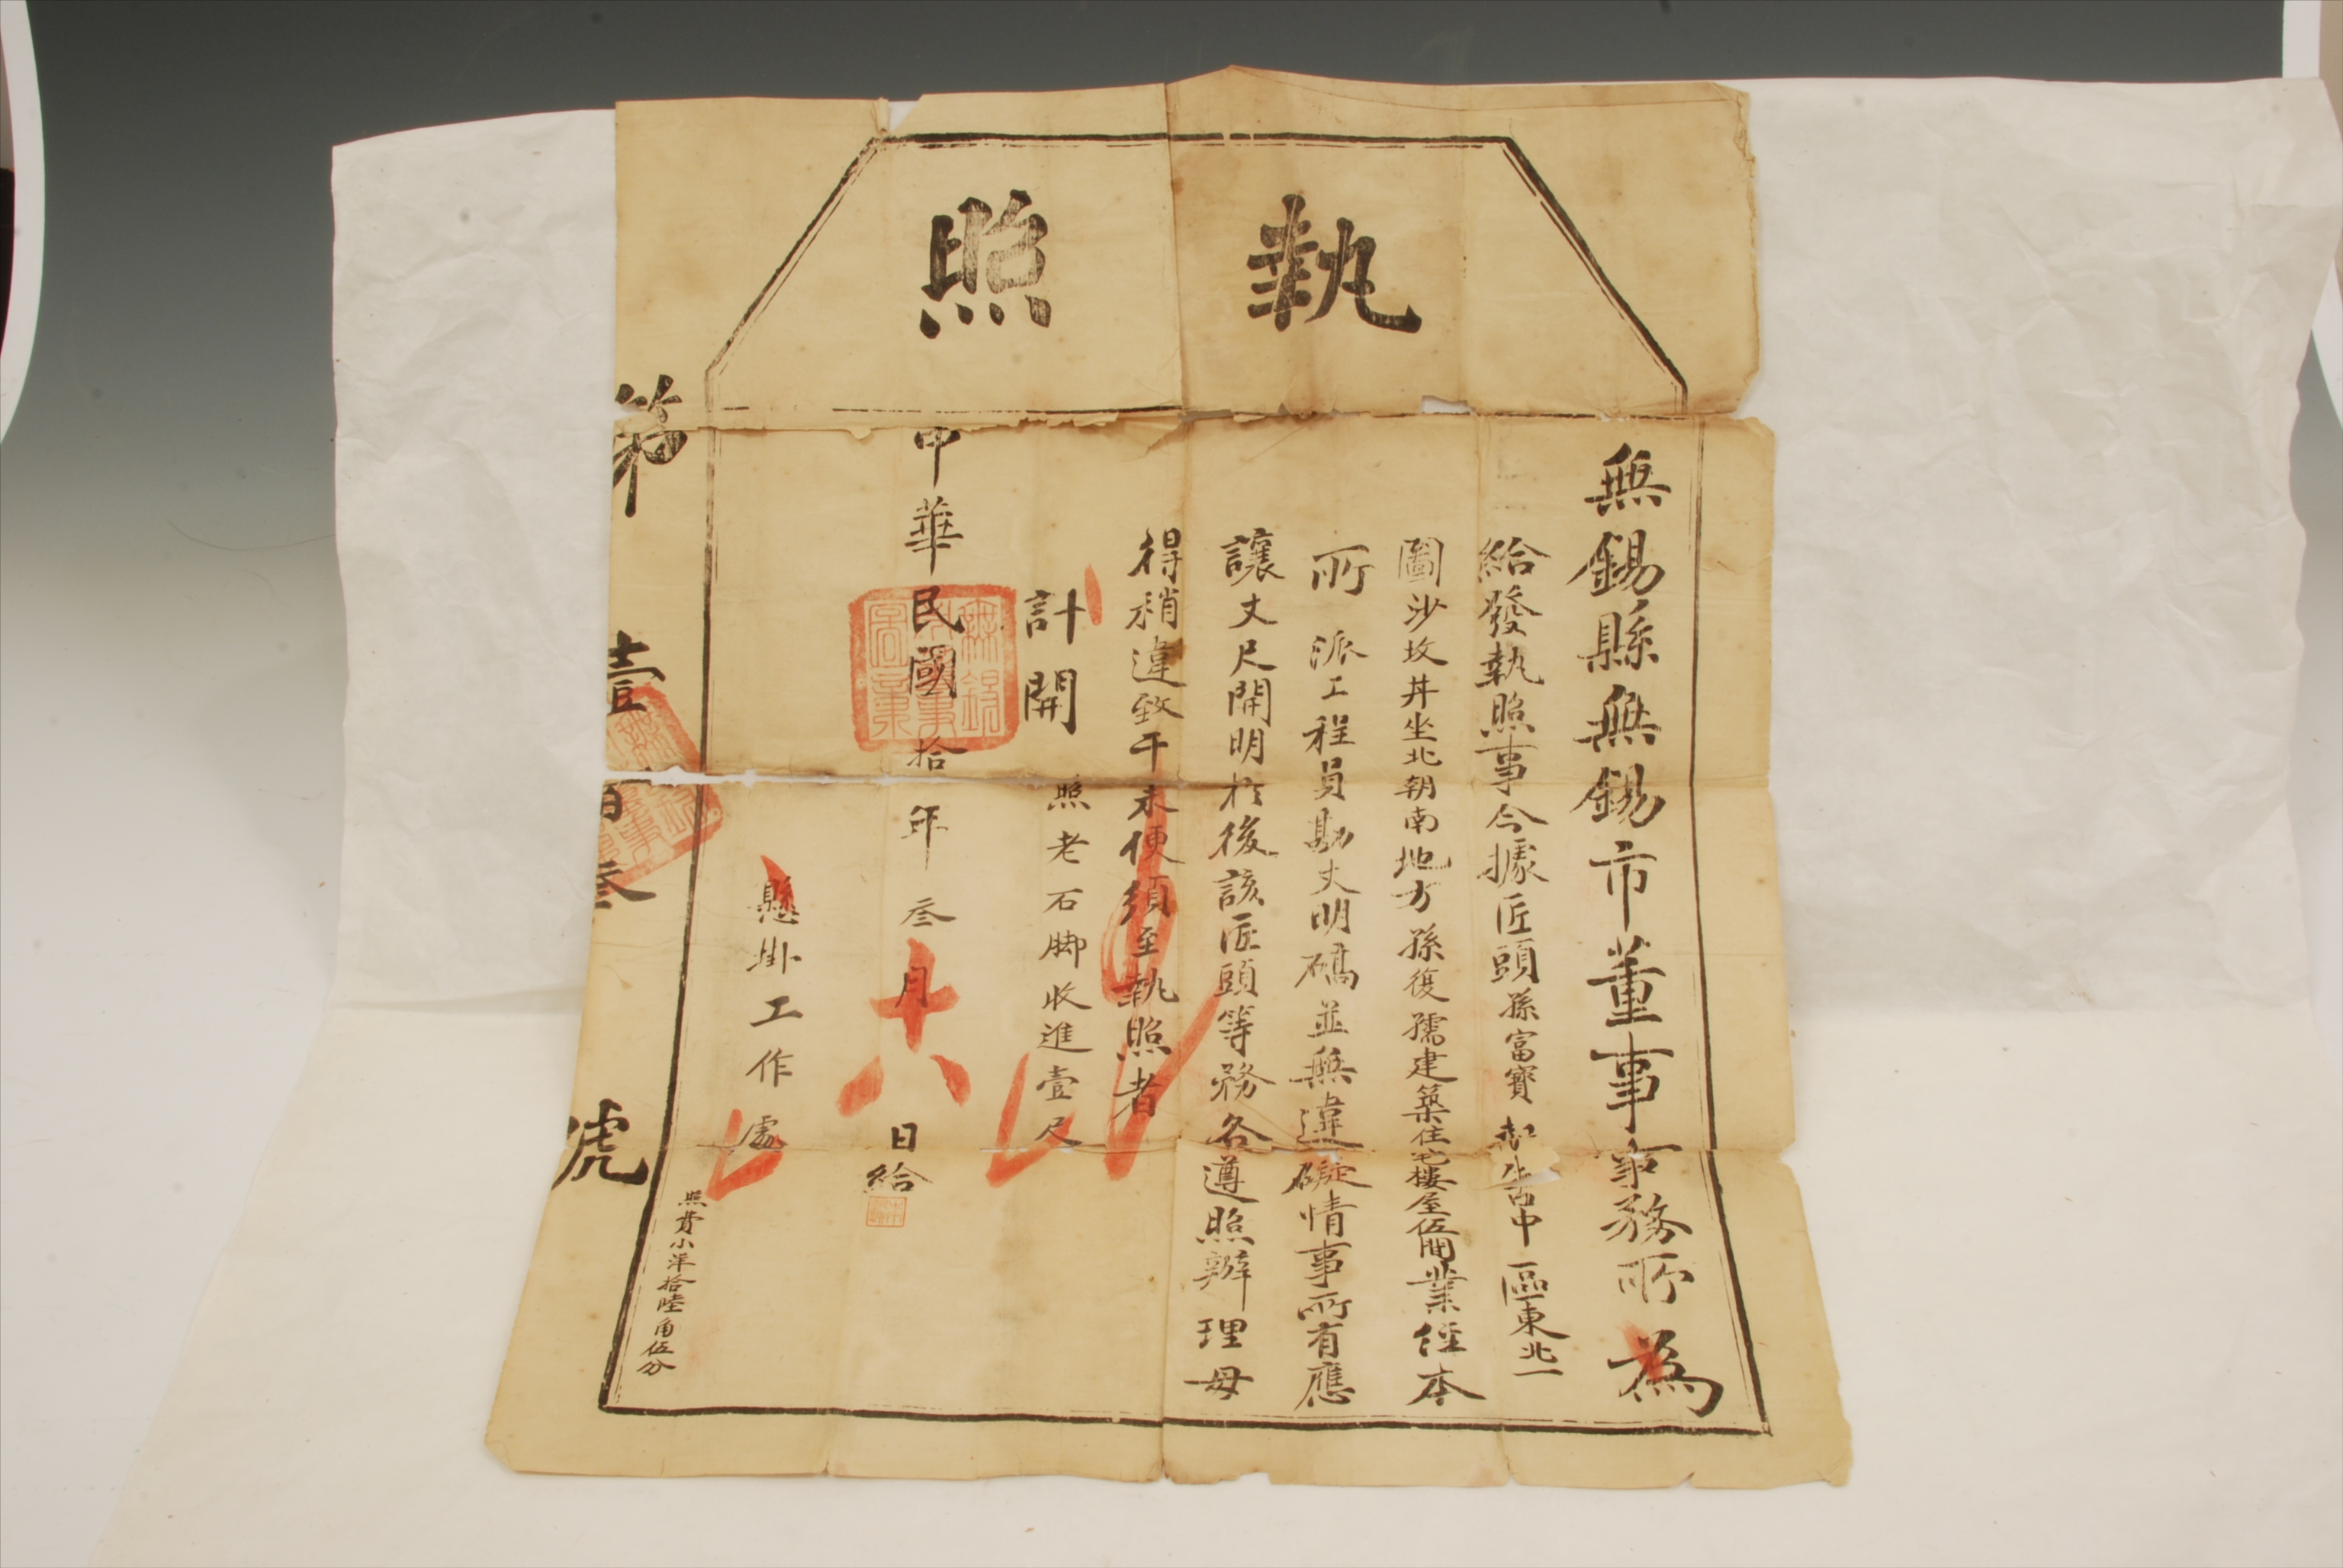 執照
無錫縣無錫市董事事務所為
給發執照事今據匠頭孫富寶報告中區東北一
圖沙坟井坐北朝南地方孫復孺建築住宅樓屋伍間業經本
所派工程員勘丈明礭並無違礙情事所有應
讓丈尺開明於後該匠頭等務各遵照辦理毋
得稍違致干未便須至執照者
計開
照老石脚收進壹尺
中華民國拾年叁月十八日給
懸掛工作處
照費小洋拾陸角伍分
第壹百叁號